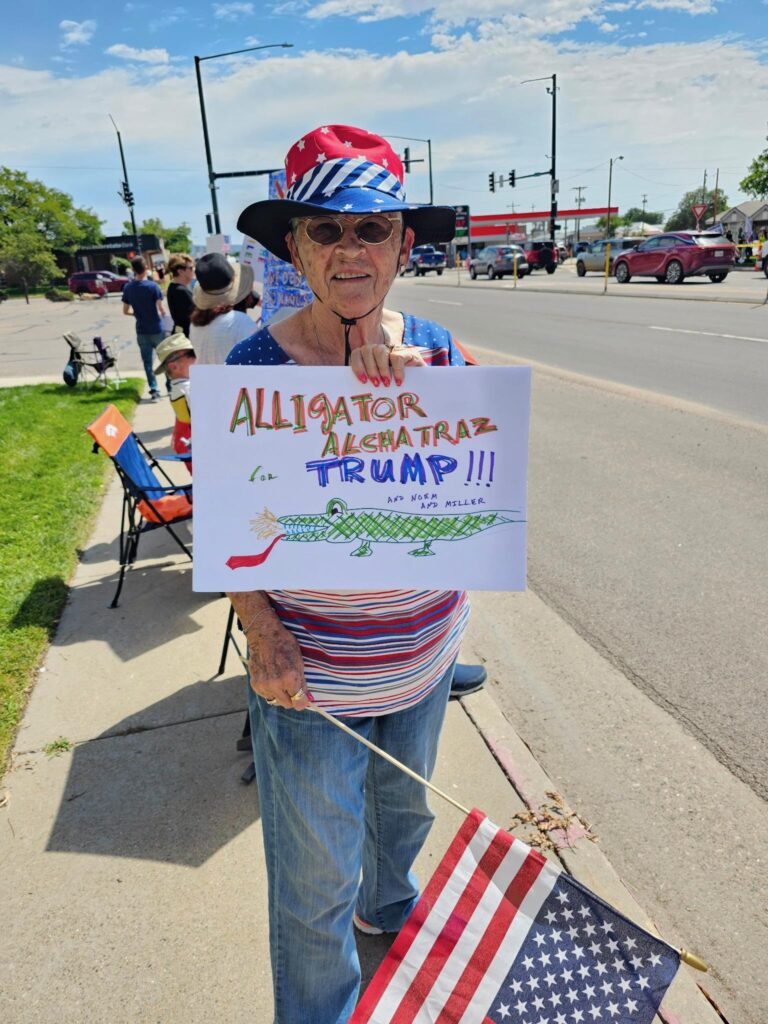 ALLIGATOR
ALCHATRAZ
for TRUMP!!!
AND NOEM
AND MILLER